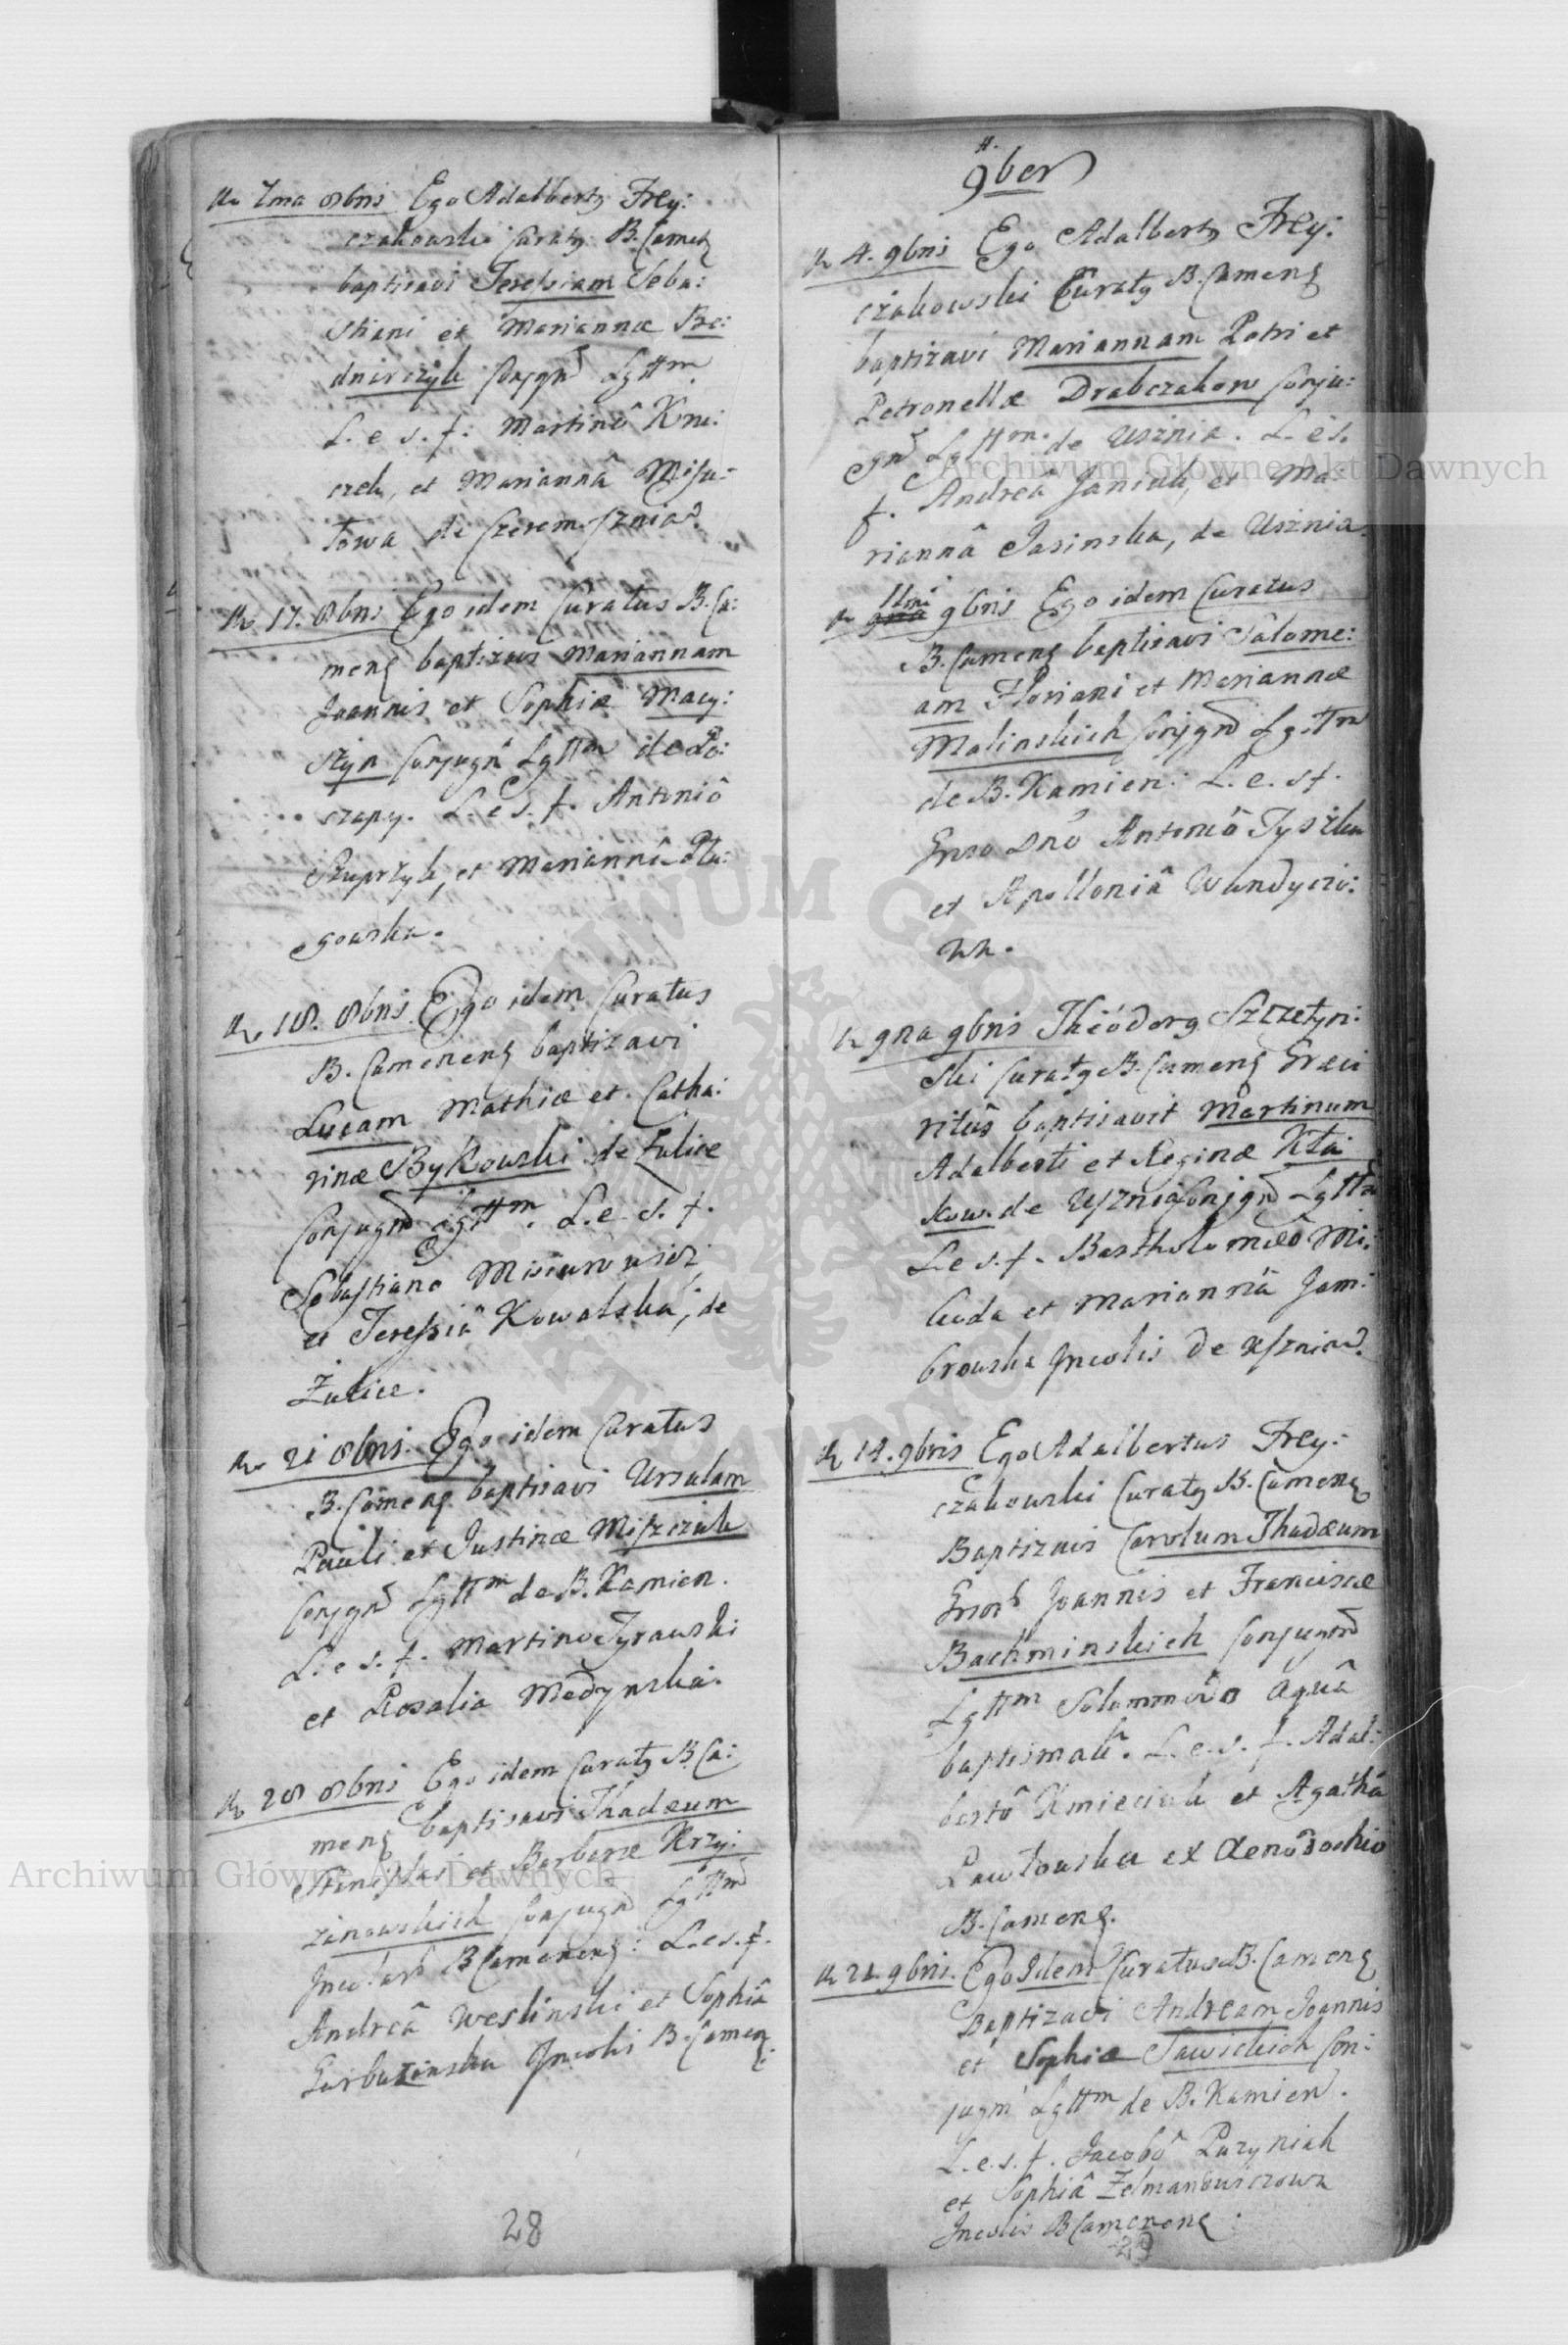 7ma 8bris Ego Adalbertg Frey:
czakowski Curatg B. Cameg
baptisavi Teressiam Seba:
stiani et Mariannæ Be:
dnarczyk Conjgm Lgttm
L. e. s. f. Martinô Kru:
czek, et Mariannâ Misiu:
towa de Czeremosznia
17. 8bris Ego idem Curatus B. Ca:
meng baptisavi Mariannam
Joannis et Sophiæ Macy:
szyn Conjugm Lgttm de Po:
czapy. L. e. s. f. Antoniô
Szuprzyk, et Mariannâ Dłu:
gowska.
18. 8bris. Ego idem Curatus
B. Cameneng baptisavi
Lucam Mathiæ et Catha:
rinæ Bykowski de Żulice
Conjugm Lgttm. L. e. s. f.
Sebastiano Misiurowicz
et Teressiâ Kowalska, de
Żulice.
21 8bris. Ego idem Curatus
B. Cameng baptisavi Ursulam
Pauli et Justinæ Miszczuk
Conjgm Lgttm de B. Kamien.
L. e. s. f. Martino Tyrawski
et Rosalia Medynska.
28 8bris Ego idem Curatg B. Ca:
meng baptisavi Thadæum
Stanislai et Barbaræ Krzy:
zanowskich Conjugm Lgttm
Incolarb B Cameneng: L. e. s. f.
Andreâ Weslinski et Sophiâ
Garbuzinska Incolis B. Cameng.
28
9ber
4. 9bris Ego Adalbertg Frey:
czakowski Curatg B. Cameng
baptizavi Mariannam Petri et
Petronellæ Drabczakow Conju:
gm Lgttm. de Usznia. L. e s.
f. Andreâ Janiuk, et Ma:
riannâ Jasinska, de Usznia.
11mi
9na 9bris Ego idem Curatus
B. Cameng baptisavi Salome:
am Floriani et Mariannæ
Malinskich Conjgm Lgttm
de B. Kamien: L. e. s f.
Grso Dnô Antoniô Tyszka
et Apolloniâ Wandyczo:
wa.
9na 9bris Théodorg Szczetyn:
ski Curatg B. Cameng Græci
ritûs baptisavit Martinum
Adalberti et Reginæ Kła
kow. de Usznia Conjgm Lgttm
L. e s. f. Bartholomæô Mi:
kuda et Mariannâ Jam:
browska Incolis de Usznia.
14. 9bris Ego Adalbertus Frey:
czakowski Curatg B. Cameng
Baptizavi Carolum Thadæum
Grsorb Joannis et Franciscæ
Bachminskich Conjugm
Lgttm Solummodo Aquâ
baptismali. L. e. s. f. Adal:
bertô Kmieciuk et Agathâ
Pawłowska ex Xenodochio
B. Cameng.
21. 9bris. Ego Idem Curatus B. Cameng
Baptizavi Andream Joannis
et Sophiæ Sawickich Con:
jugm Lgttm de B. Kamien.
L. e. s. f. Jacobô Puzyniak
et Sophiâ Zelmanowiczowa
Incolis B Cameneng
29
Archiwum Główne Akt Dawnych
Archiwum Główne Akt Dawnych